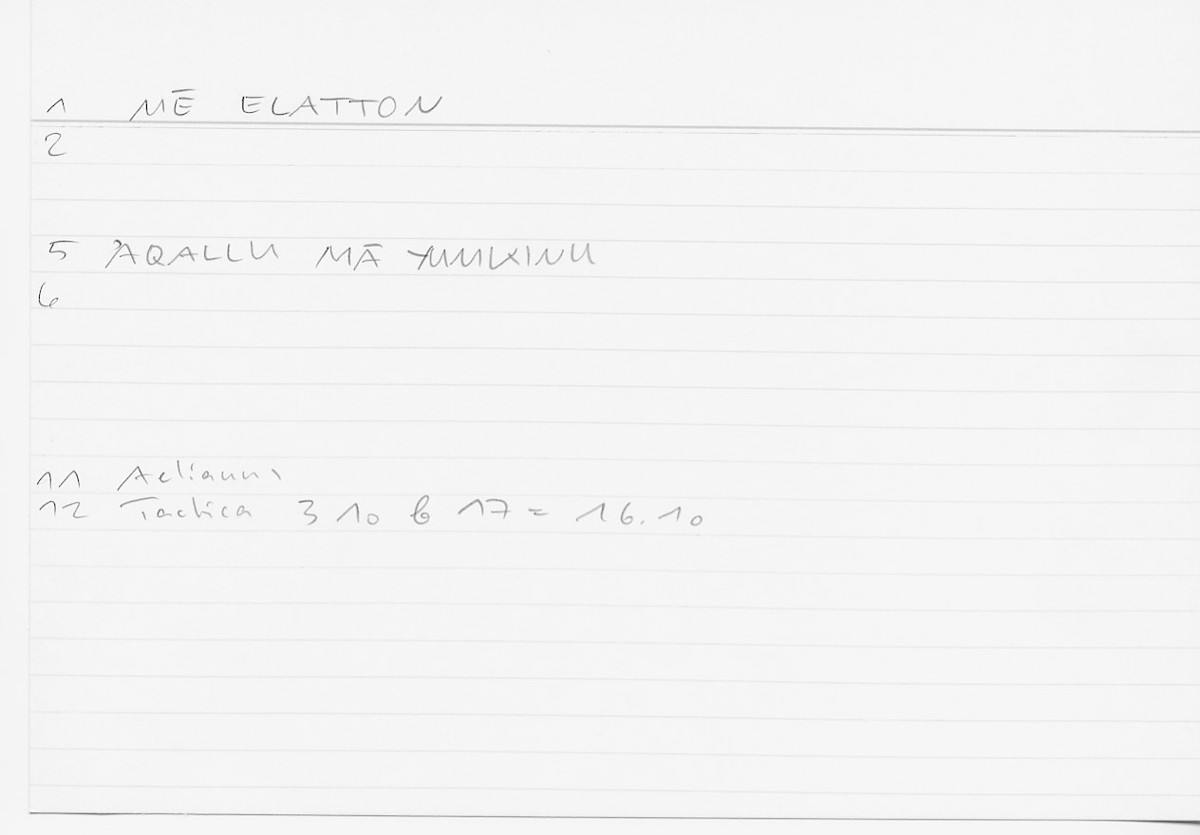 1 MĒ ELATTON
2
5 ʾAQALLU MĀ YUMKINU
6
11 Aelianus
12 Tactica 3 10 b 17 = 16.10